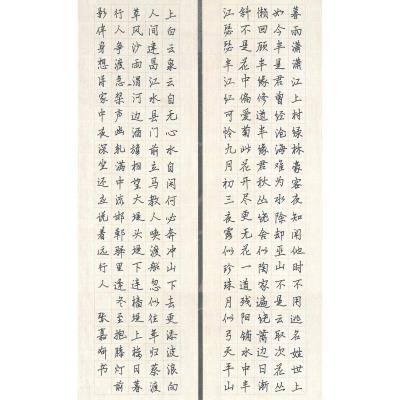 暮雨潇潇江上村绿林豪客夜知闻他时不用逃名姓世上
如今半是君曾经沧海难为水除却巫山不是云取次花丛
懒回顾半缘修道半缘君秋丛绕舍似陶家遍绕篱边日渐
斜不是花中偏爱菊此花开尽更无花一道残阳铺水中半
江瑟瑟半江红可怜九月初三夜露似珍珠月似弓天平山
上白云泉云自无心水自闲何必奔冲山下去更添波浪向
人间建昌江水县门前立马教人唤渡船忽似往年归蔡渡
草风沙雨渭河边酒旗相望大堤头堤下连樯堤上楼日暮
行人争渡急桨声幽轧满中流邯郸驿里逢冬至抱膝灯前
影伴身想得家中夜深坐还应说着远行人 张嘉书